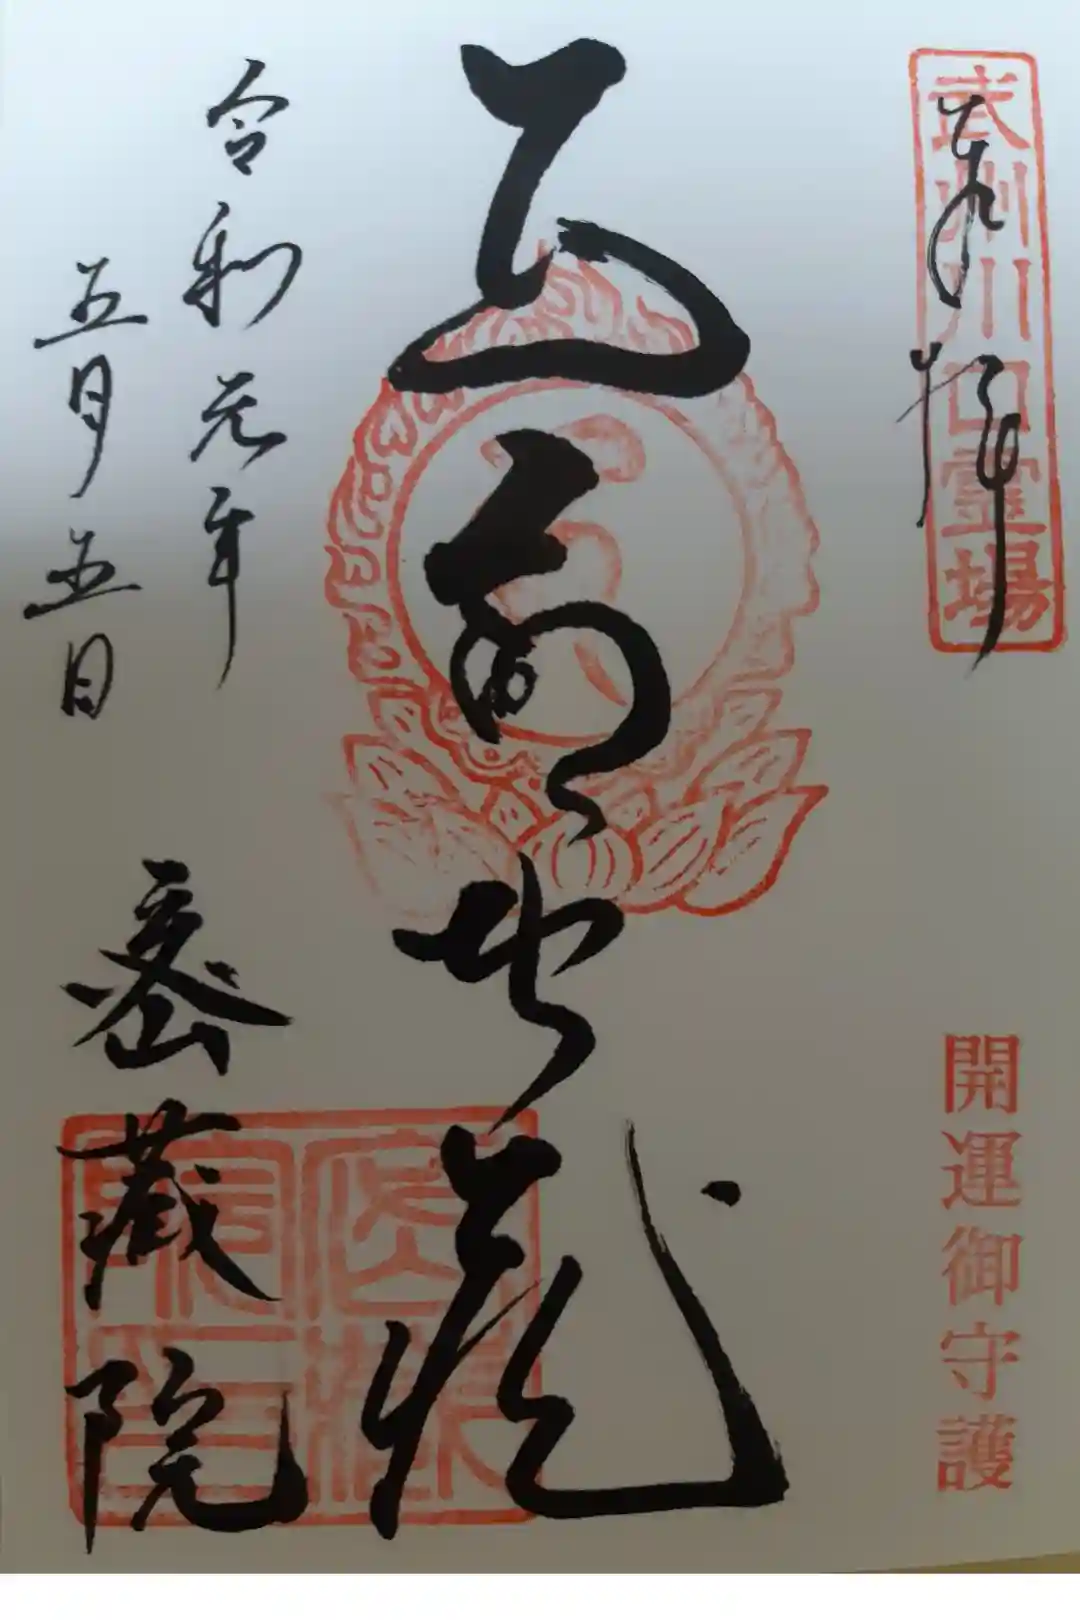 奉拝
武州川口霊場
開運御守護
地蔵
令和元年
五月五日
密蔵院